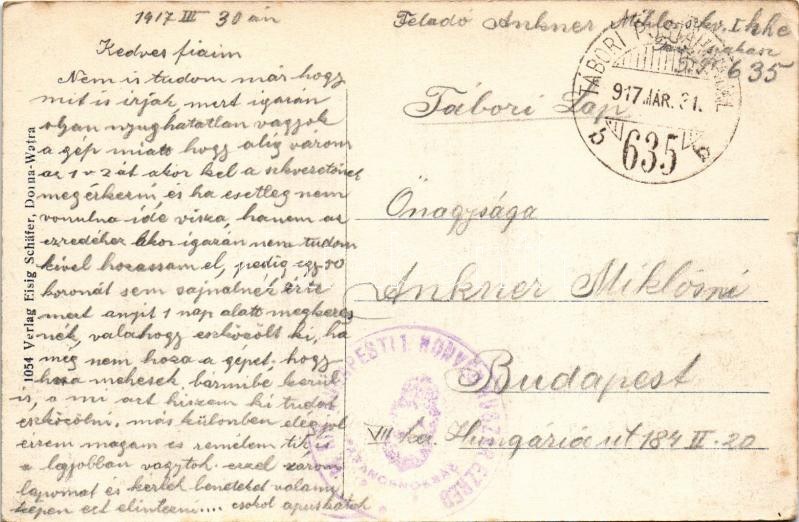 1917 III 30 án
Kedves fiaim
Nem is tudom már hogy
mit is irjak, mert igazán
olyan nyughatatlan vagyok
a gép miatt hogy alig várom
az 1 v 2 át akor kel a
megérkezni, és ha esetleg nem
vonulna ide visza, hanem az
ezredéhez akor igazán nem tudom
kivel hozassam el, pedig egy 50
koronát sem sajnálnék érte
mert anyit 1 nap alatt megkeres
nék, valahogy eszközölt ki, ha
még nem hozza a gépet, hogy
haza mehesek bármibe kerül
is, a mi azt hiszem ki tudod
eszközölni. más különben elég jol
érzem magam és remélem ti
a legjobban vagytok ezzel zárom
lapomat és kérlek benetekct valami
képen ezt elintézni.... csokol apuskátok
Feladó Ankner Miklos
635
TÁBORI
917 MÁR. 31.
635
Tábori Lap
Önagysága
Ankner Miklósné
Budapest
VII ker. Hungária ut 184 II. 20
BUDAPESTI 1. HONVÉD HUSZÁR EZRED
1054 Verlag Eisig Schäfer, Dorna-Watra